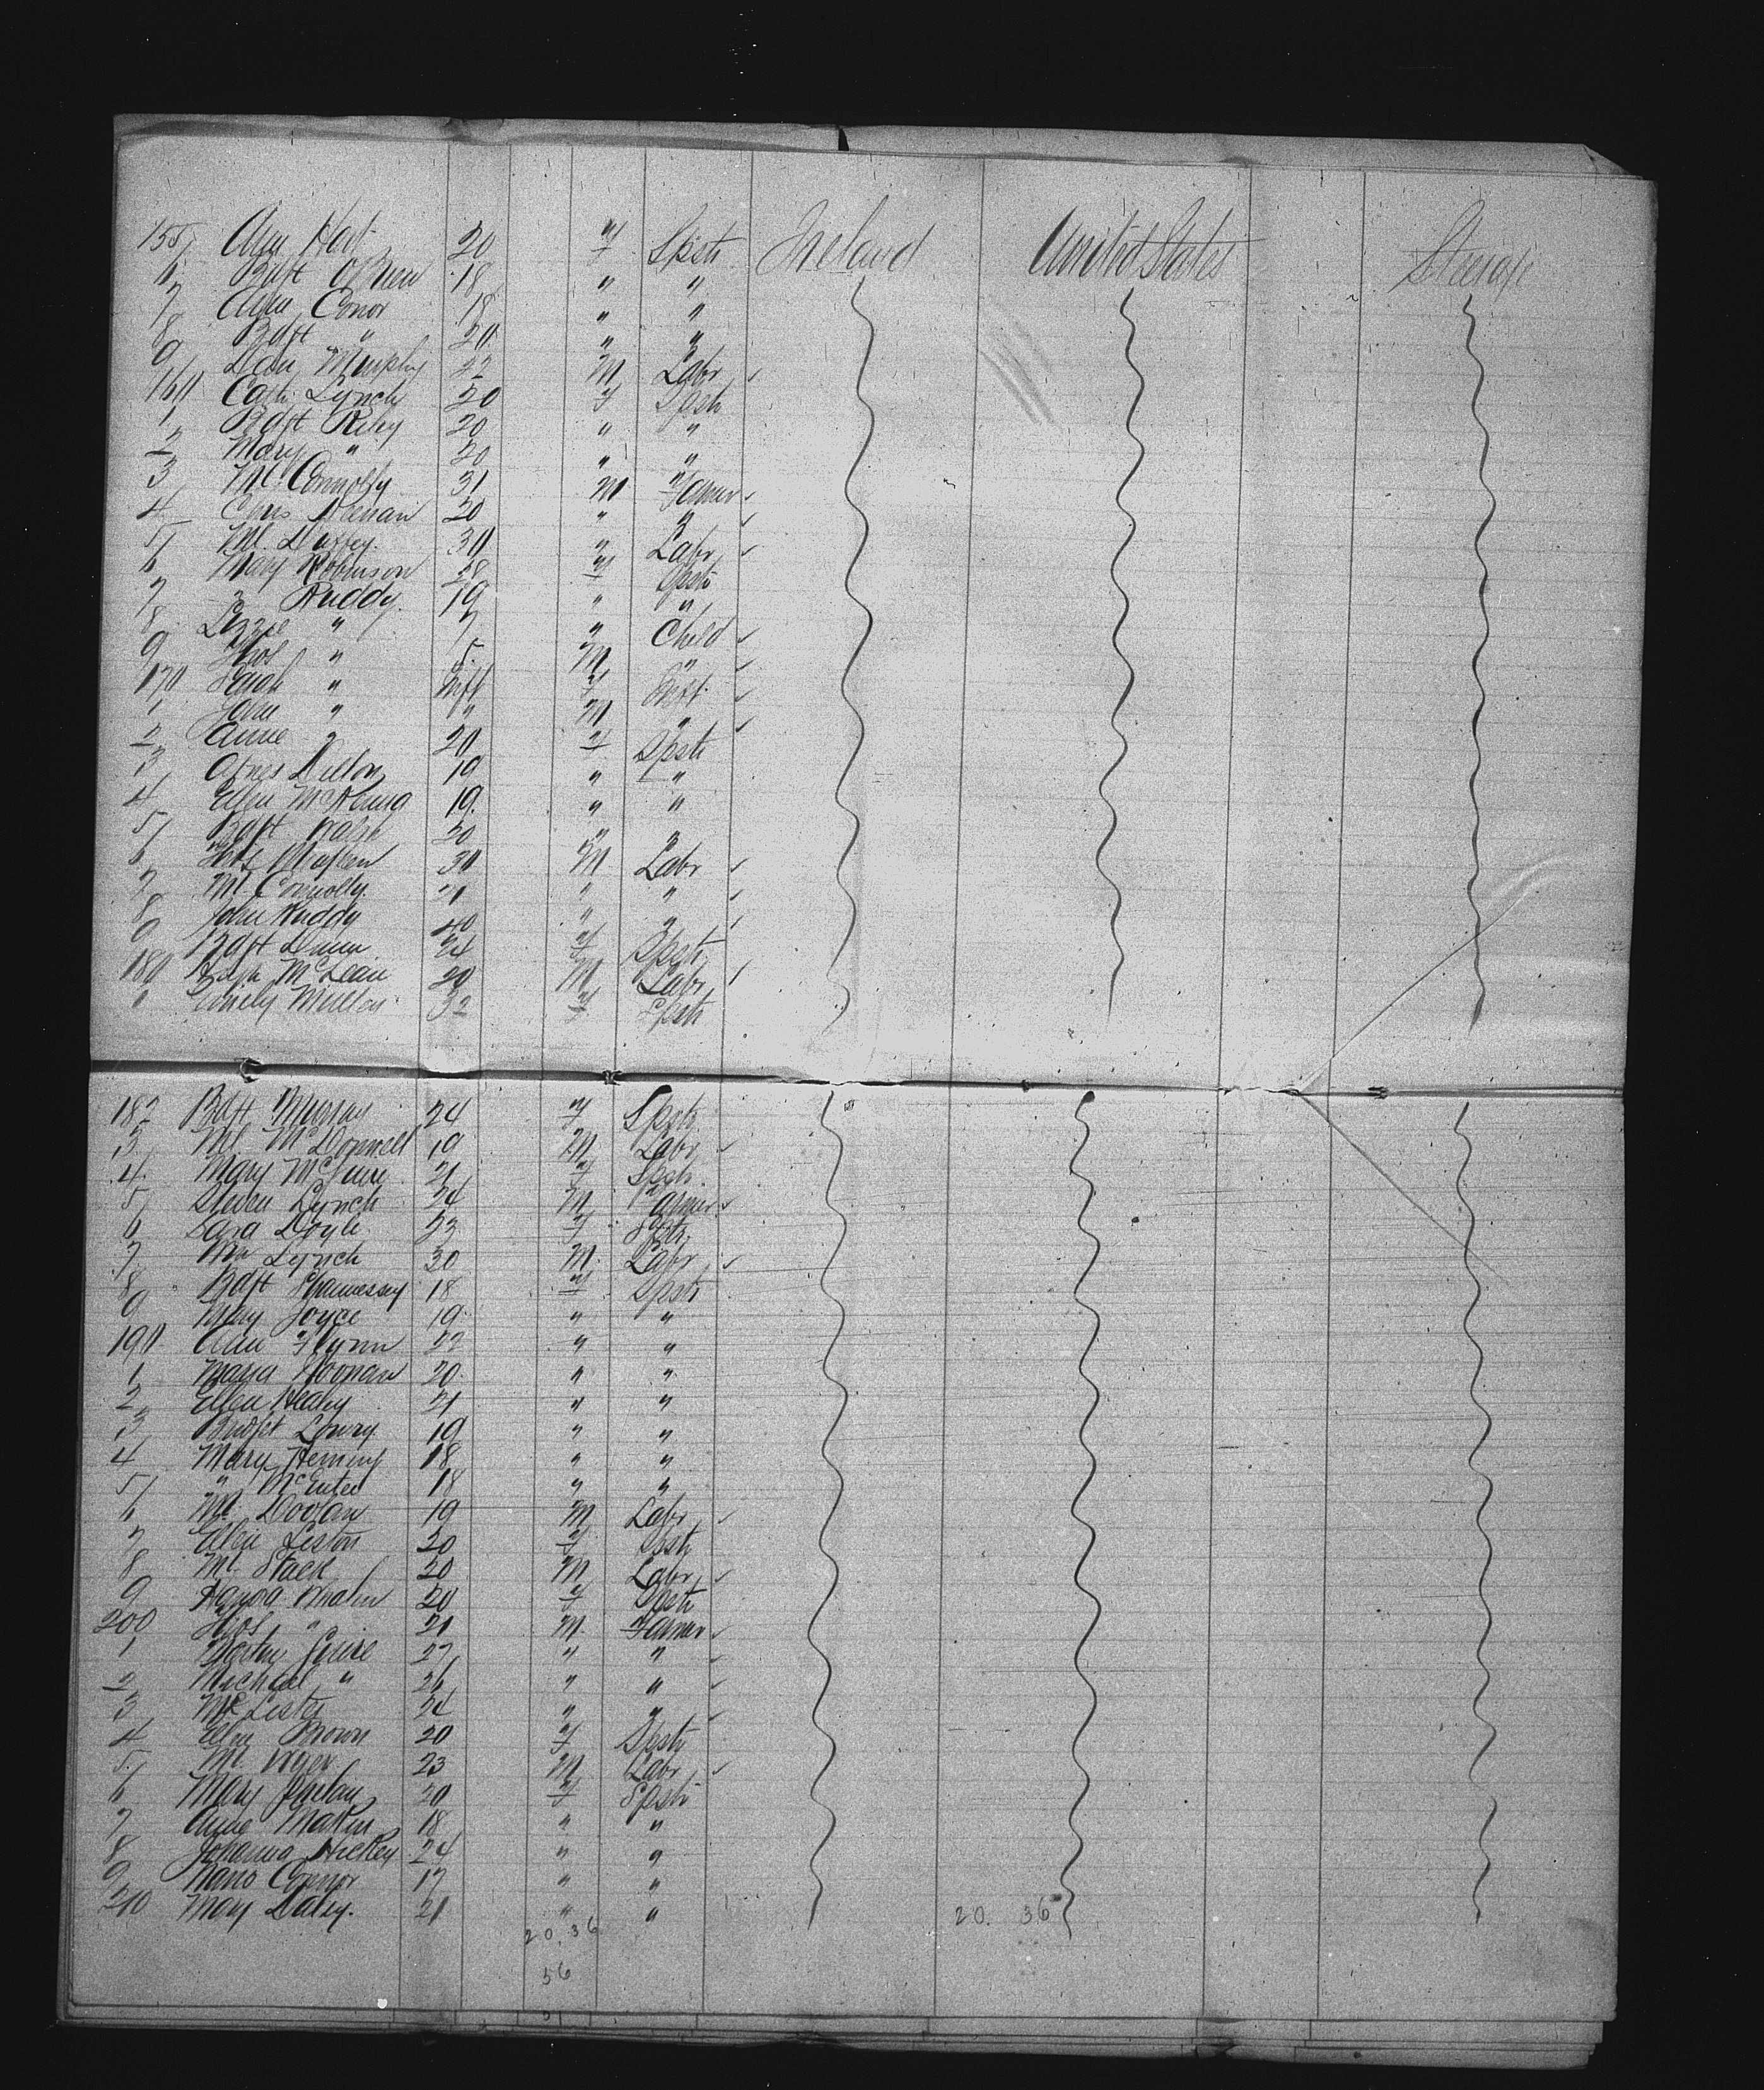 155 Ann Hart 20 f Spstr Ireland United States Steerage
6 Bdgt O'Brien 18 " "
7 Ann Conor 18 " "
8 Bdgt " 20 " "
9 Dan Murphy 22 M Labr
160 Cath Lynch 20 f Spstr
1 Bdgt Riley 20 " "
2 Mary " 20 " "
3 Ml Connolly 31 M Farmer
4 Chris 20 " "
5 Ml Duffey 30 " Labr
6 Mary Robinson 28 f Spstr
7 " Ruddy 19 " "
8 Lizzie " 7 " Child
9 Thos " 5 M "
170 Sarah " Inft f Inft
1 John " " M "
2 Anne " 20 f Spstr
3 Agnes Dillon 19 " "
4 Ellen McKenna 19 " "
5 Bdgt Walsh 20 " "
6 Thos 30 M Labr
7 Ml Connolly 21 " "
8 John Ruddy 40 " "
9 Bdgt Dunn 24 f Spstr
180 McLean 20 M Labr
1 Emily Mullen 32 f Spstr
182 Bdgt Murray 24 f Spstr
3 Ml McDonnell 19 M Labr
4 Mary McGuire 21 f Spstr
5 Steven Lynch 24 M Farmer
6 Sara Doyle 23 f Spstr
7 Lynch 30 M Labr
8 Bdgt Shannessy 18 f Spstr
9 Mary Joyce 19 " "
190 Ann Flynn 22 " "
1 Maria Noonan 20 " "
2 Ellen Healey 21 " "
3 Bridget Lowry 19 " "
4 Mary Fleming 18 " "
5 " McEntee 18 " "
6 Ml Doolan 19 M Labr
7 Ellen Liston 20 f Spstr
8 Ml Stack 20 M Labr
9 Hanora 20 f Spstr
200 Thos " 21 M Farmer
1 Martin 27 " "
2 Michael " 26 " "
3 Lister 24 " "
4 Ellen Brown 20 f Spstr
5 Ml 23 M Labr
6 Mary 20 f Spstr
7 Anne Makin 18 " "
8 Johanna Hickey 24 " "
9 Nano Connor 17 " "
210 Mary Daley 21 " "
20. 36 20. 36
56